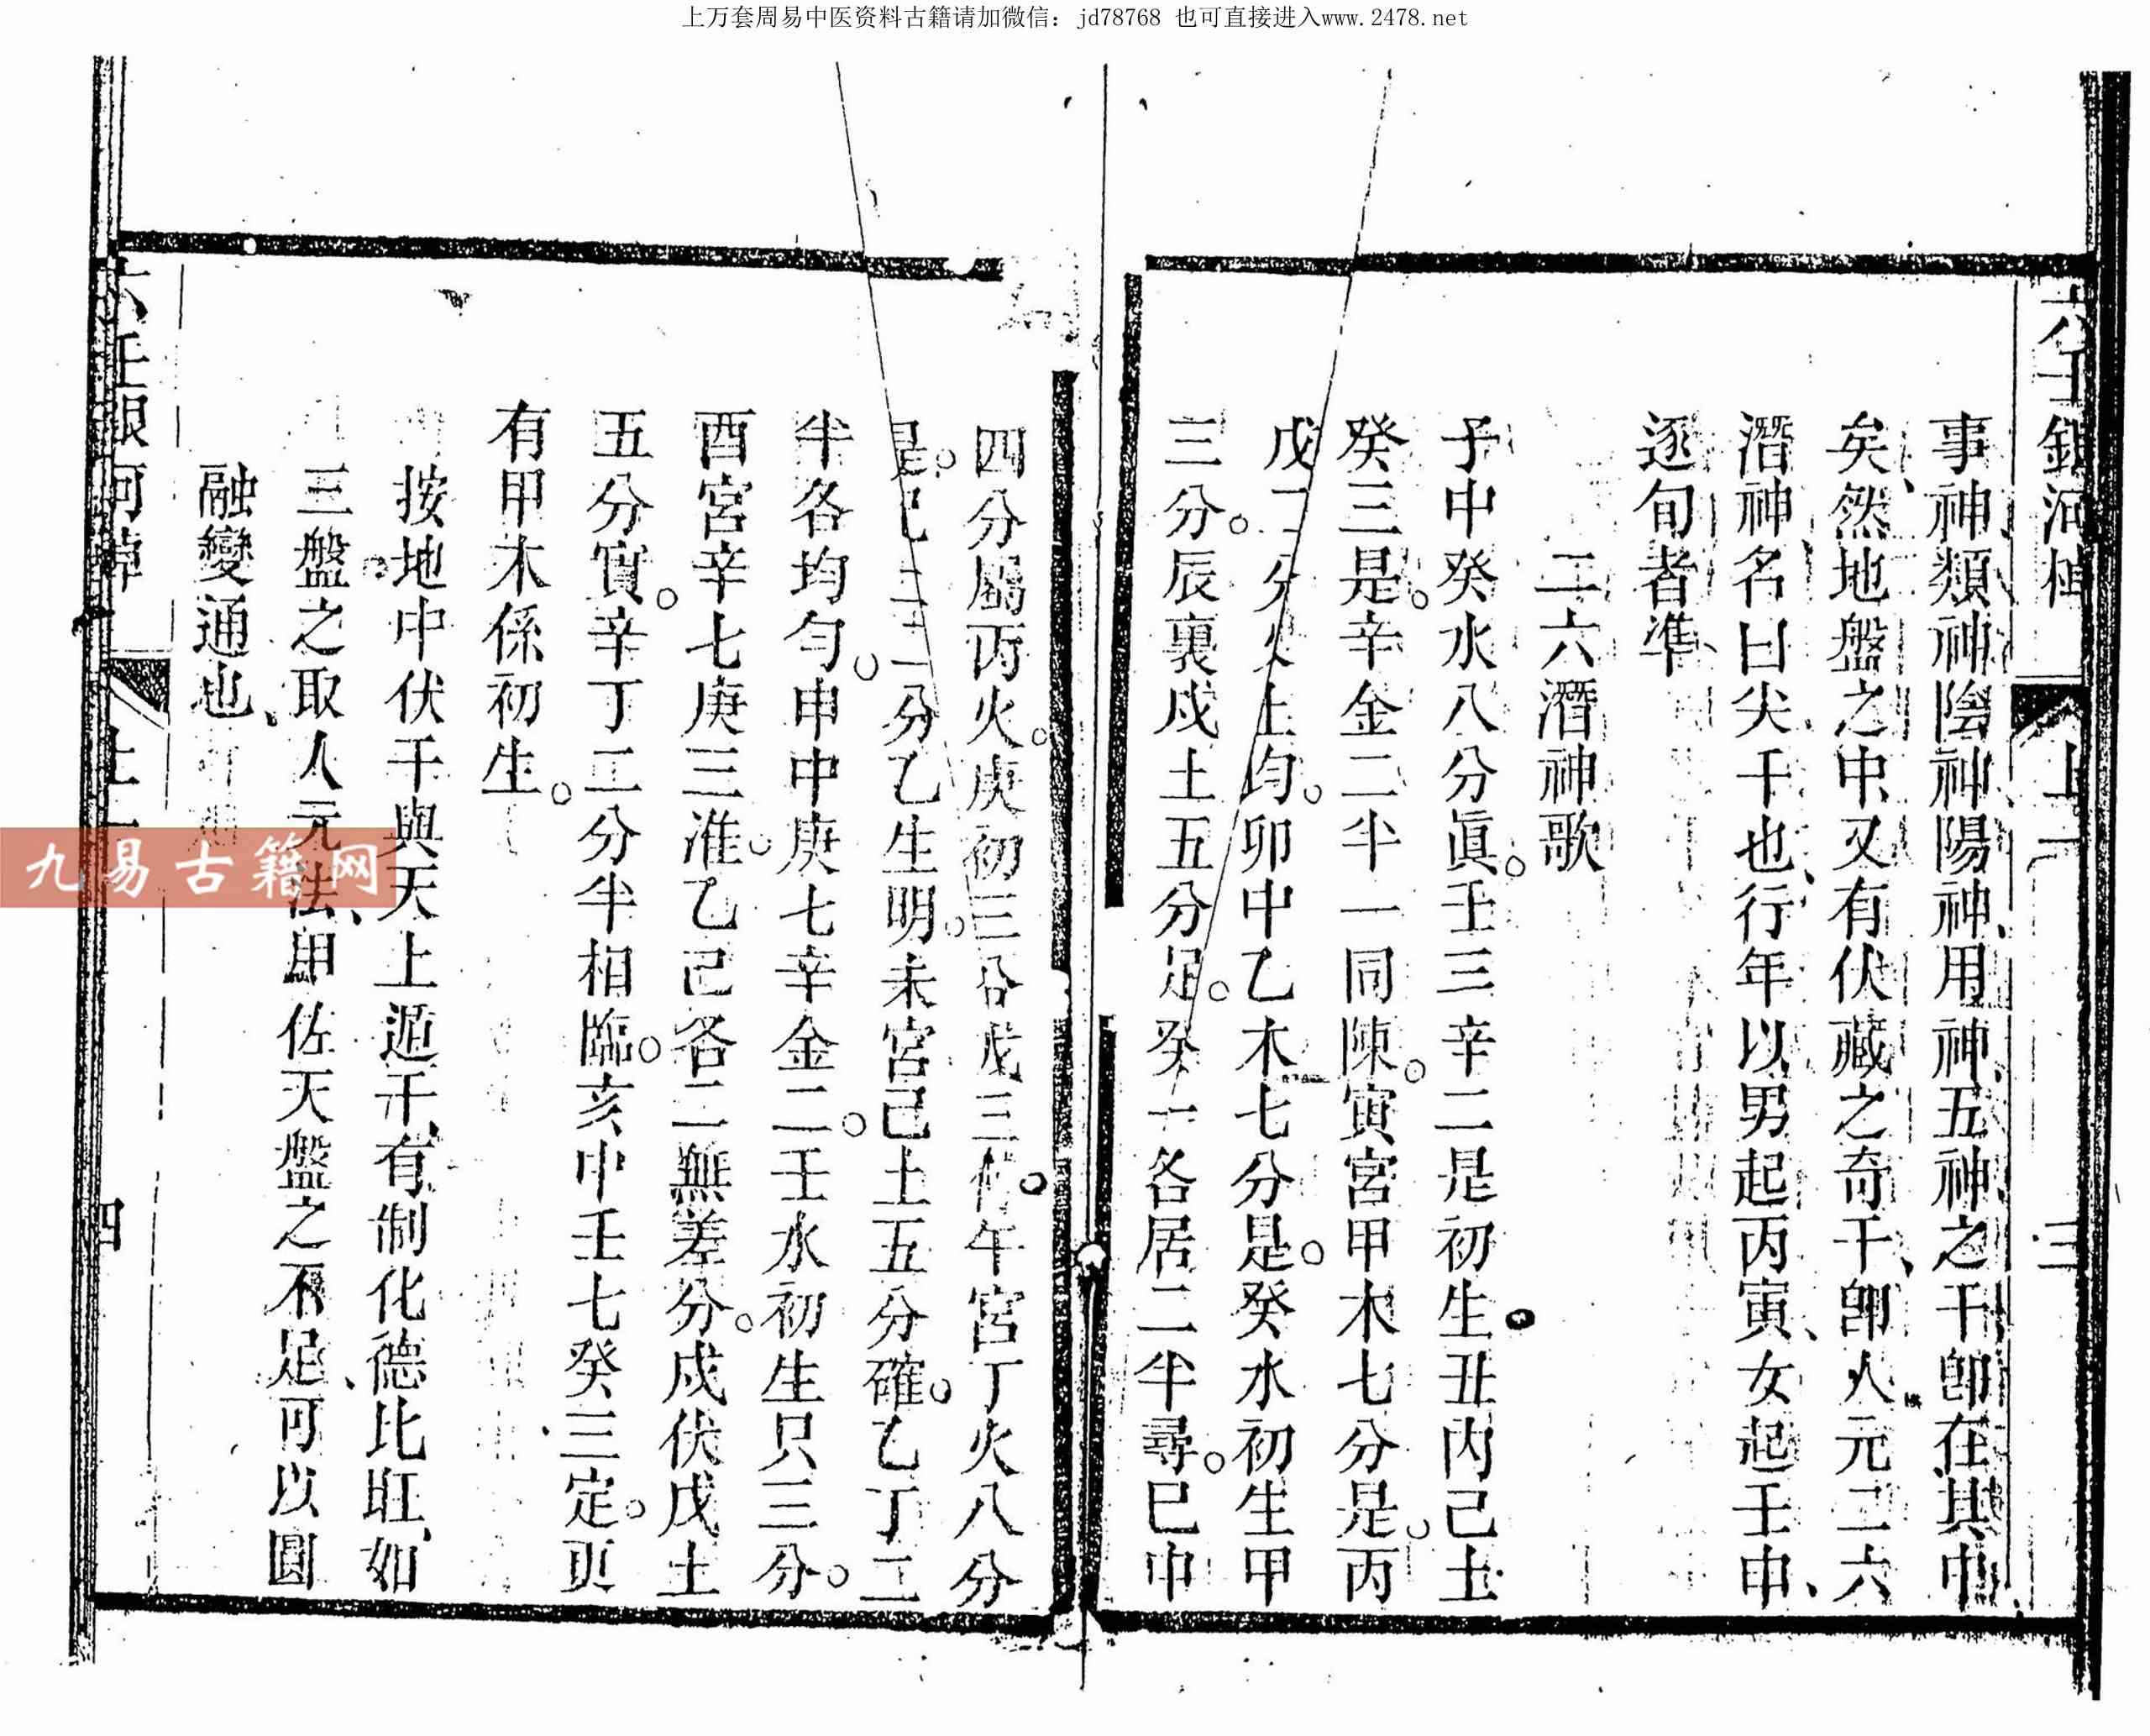 上万套周易中医资料古籍请加微信：jd78768 也可直接进入www.2478.net
六壬銀河棹 上一 三
事神類神陰神陽神用神五神之干卽在其中
矣然地盤之中又有伏藏之奇干卽人元二六
潛神名曰尖干也行年以男起丙寅女起壬申
逐旬者準
二六潛神歌
子中癸水八分眞。壬三辛二是初生。丑內己土
癸三是。辛金二半一同陳。寅宮甲木七分是。丙
戊二分火土均。卯中乙木七分是。癸水初生甲
三分。辰裏戊土五分足。癸一各居二半尋。巳中
四分屬丙火。庚初三分戊三。午宮丁火八分
是。己二一分乙生明。未宮己土五分確。乙丁二
半各均勻。申中庚七辛金二。壬水初生只三分。
酉宮辛七庚三准。乙己各二無差分。戌伏戊土
五分實。辛丁二分半相臨。亥中壬七癸三定。更
有甲木係初生。
按地中伏干與天上遁干有制化德比旺如
三盤之取人元法用佐天盤之不足可以圓
融變通也
六壬銀河棹 上一 四
九易古籍网